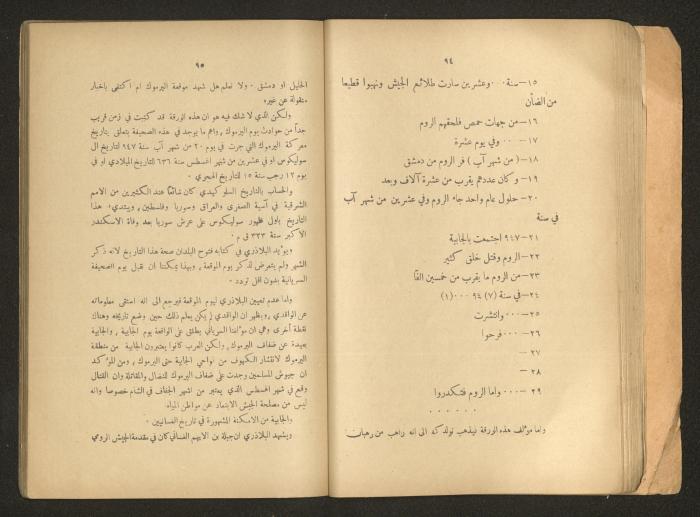 ٩٤
١٥-سنة ٠٠٠ وعشرين سارت طلائع الجيش ونهبوا قطيعا
من الضأن
١٦-من جهات حمص فلحقهم الروم
١٧- ٠٠٠ وفي يوم عشرة
١٨-( من شهر آب ) فر الروم من دمشق
١٩- وكان عددهم يقرب من عشرة آلاف وبعد
٢٠- حلول عام واحد جاء الروم وفي عشرين من شهر آب
في سنة
٢١- ٩٤٧ اجتمعت بالجابية
٢٢- الروم وقتل خلق كثير
٢٣- من الروم ما يقرب من خمسين الفًا
٢٤- في سنة (٧) ٩٤ ٠٠٠(١)
٢٥- ٠٠٠ وانتشرت
٢٦- ٠٠٠ فرحوا
٢٧ -
٢٨ -
٢٩ - ٠٠٠ واما الروم فتكدروا
٠ ٠ ٠ ٠ ٠ ٠
واما مؤلف هذه الورقة فيذهب نولدكه الى انه راهب من رهبان
٩٥
الجليل او دمشق ٠ ولا نعلم هل شهد موقعة اليرموك ام اكتفى باخبار
منقولة عن غيره
ولكن الذي لا شك فيه هو ان هذه الورقة قد كتبت في زمن قريب
جداً من حوادث يوم اليرموك , واهم ما يوجد في هذه الصحيفة يتعلق بتاريخ
معركة اليرموك التي جرت في يوم ٢٠ من شهر آب سنة ٩٤٧ لتاريخ الى
سوليكوس او في عشرين من شهر اغسطس سنة ٦٣٦ للتاريخ الميلادي او في
يوم ١٢ رجب سنة ١٥ للتاريخ الهجري ٠
والحساب بالتاريخ السلوكيدي كان شائعًا عند الكثيرين من الامم
الشرقية في آسية الصغرى والعراق وسوريا وفلسطين , ويبتدىء هذا
التاريخ باول ظهور سوليكوس على عرش سوريا بعد وفاة الاسكندر
الاكبر سنة ٣٢٣ ق م ٠
ويؤيد البلاذري في كتابه فتوح البلدان صحة هذا التاريخ لانه ذكر
الشهر ولم يتعرض لذكر يوم الموقعة , وبهذا يمكننا ان نقبل يوم الصحيفة
السريانية بدون اقل تردد ٠
واما عدم تعيين البلاذري ليوم الموقعة فيرجع الى انه استقى معلوماته
عن الواقدي , ويظهر ان الواقدي لم يكن يعلم ذلك حين وضع تاريخه وهناك
نقطة أخرى وهي ان مؤلفنا السرياني يطلق على الواقعة يوم الجابية , والجابية
بعيدة عن ضفاف اليرموك , ولكن العرب كانوا يعتبرون الجابية من منطقة
اليرموك لانتشار الكهوف من نواحي الجابية حتى اليرموك , ومن المؤكد
ان جيوش المسلمين وجدت على ضفاف اليرموك للنضال والمقاتلة وان القتال
وقع في شهر اغسطس الذي يعتبر من اشهر الجفاف في الشام خصوصا وانه
ليس من مصلحة الجيش الابتعاد عن مواطن المياه
والجابية من الامكنة المشهورة في تاريخ الغسانيين ٠
ويشهد البلاذري ان جبلة بن الايهم الغساني كان في مقدمة الجيش الرومي